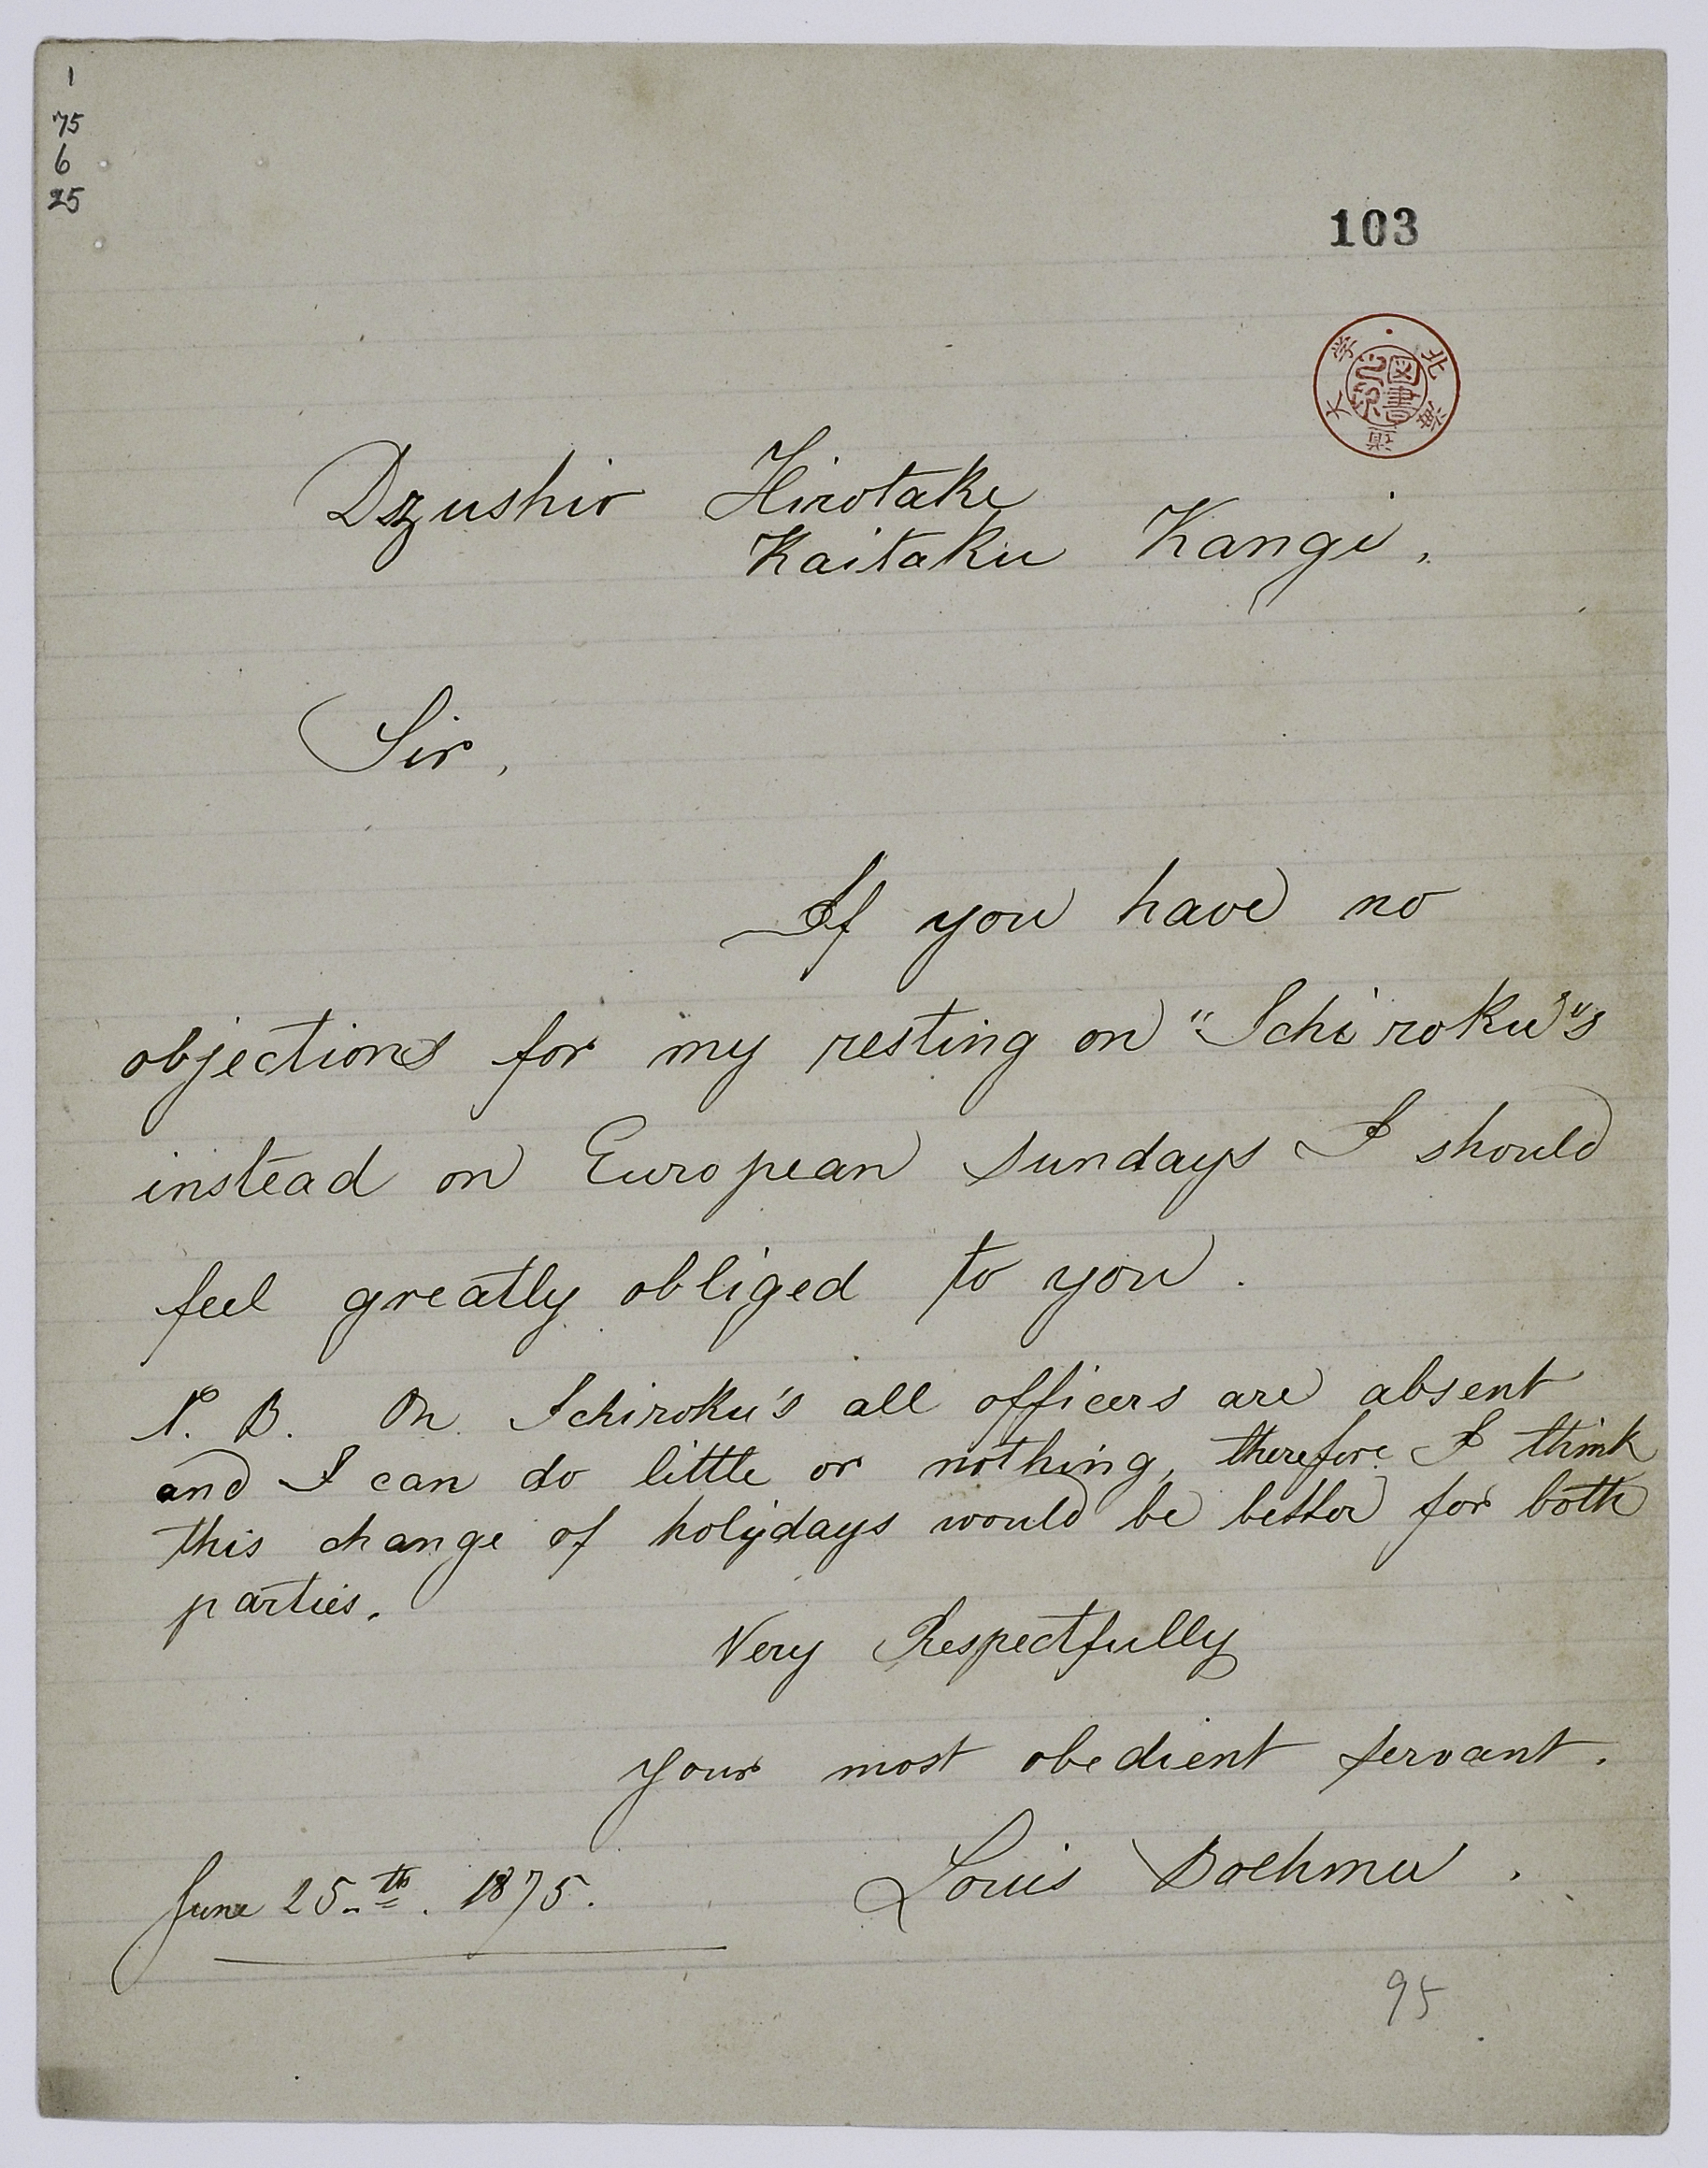 1
75
6
25
103
北海道大学
図書
Dzushio Hirotake
Kaitaku Kangi.
Sir,
If you have no
objections for my resting on "Ichi roku"s
instead on European sundays I should
feel greatly obliged to you.
N. B. On Ichiroku's all officers are absent
and I can do little or nothing, therefore I think
this change of holydays would be better for both
parties.
Very Respectfully
your most obedient servant.
Louis Boehmer.
June 25th. 1875.
95